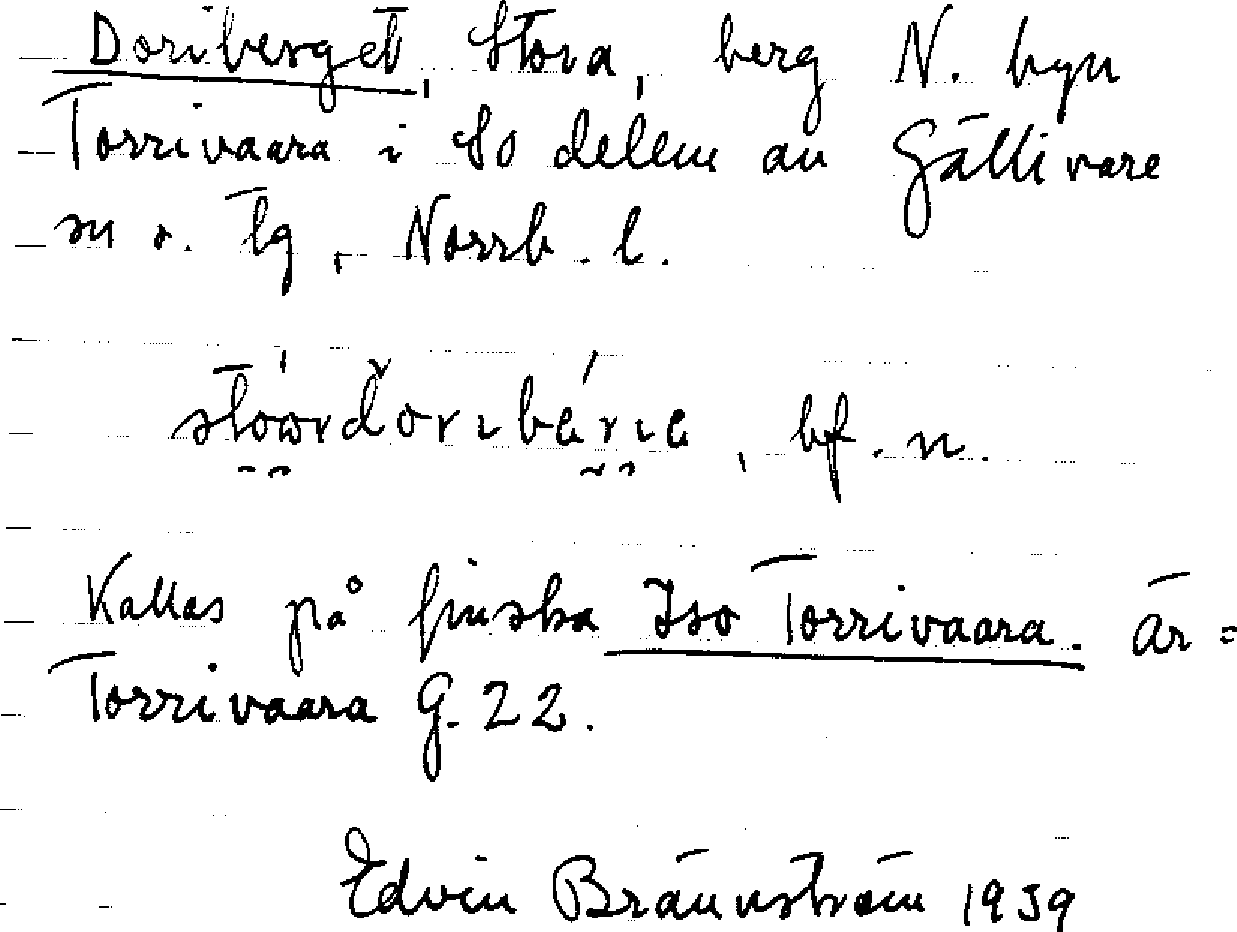 Doriberget, Stora, berg N. byn
Torrivaara i So delen av Gällivare
sn o. tg, Norrb. l.
bf. n.
Kallas på finska Iso Torrivaara. Är =
Torrivaara G. 22.
Edvin Brännström 1939